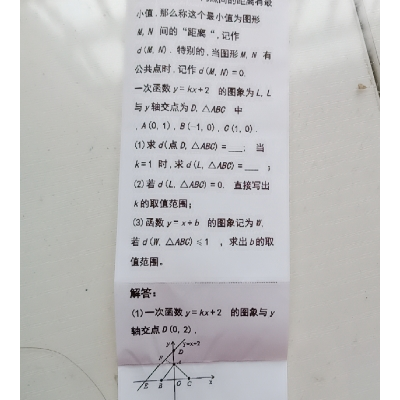 间的距离有最
小值,那么称这个最小值为图形
M,N 间的"距离",记作
d(M,N).特别的,当图形M,N 有
公共点时,记作d(M,N)=0.
一次函数y=kx+2 的图象为L,L
与y轴交点为D,△ABC 中
,A(0,1),B(-1,0),C(1,0).
(1)求d(点D,△ABC)=___;当
k=1 时,求d(L,△ABC)=___;
(2)若d(L,△ABC)=0.直接写出
k的取值范围;
(3)函数y=x+b 的图象记为W,
若d(W,△ABC)≤1 ,求出b的取
值范围。
解答:
(1)一次函数y=kx+2 的图象与y
轴交点D(0,2),
y y=x+2
D
A
E B O C x